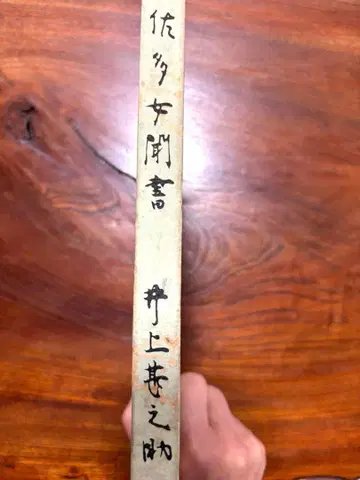 佐多女聞書 井上甚之助